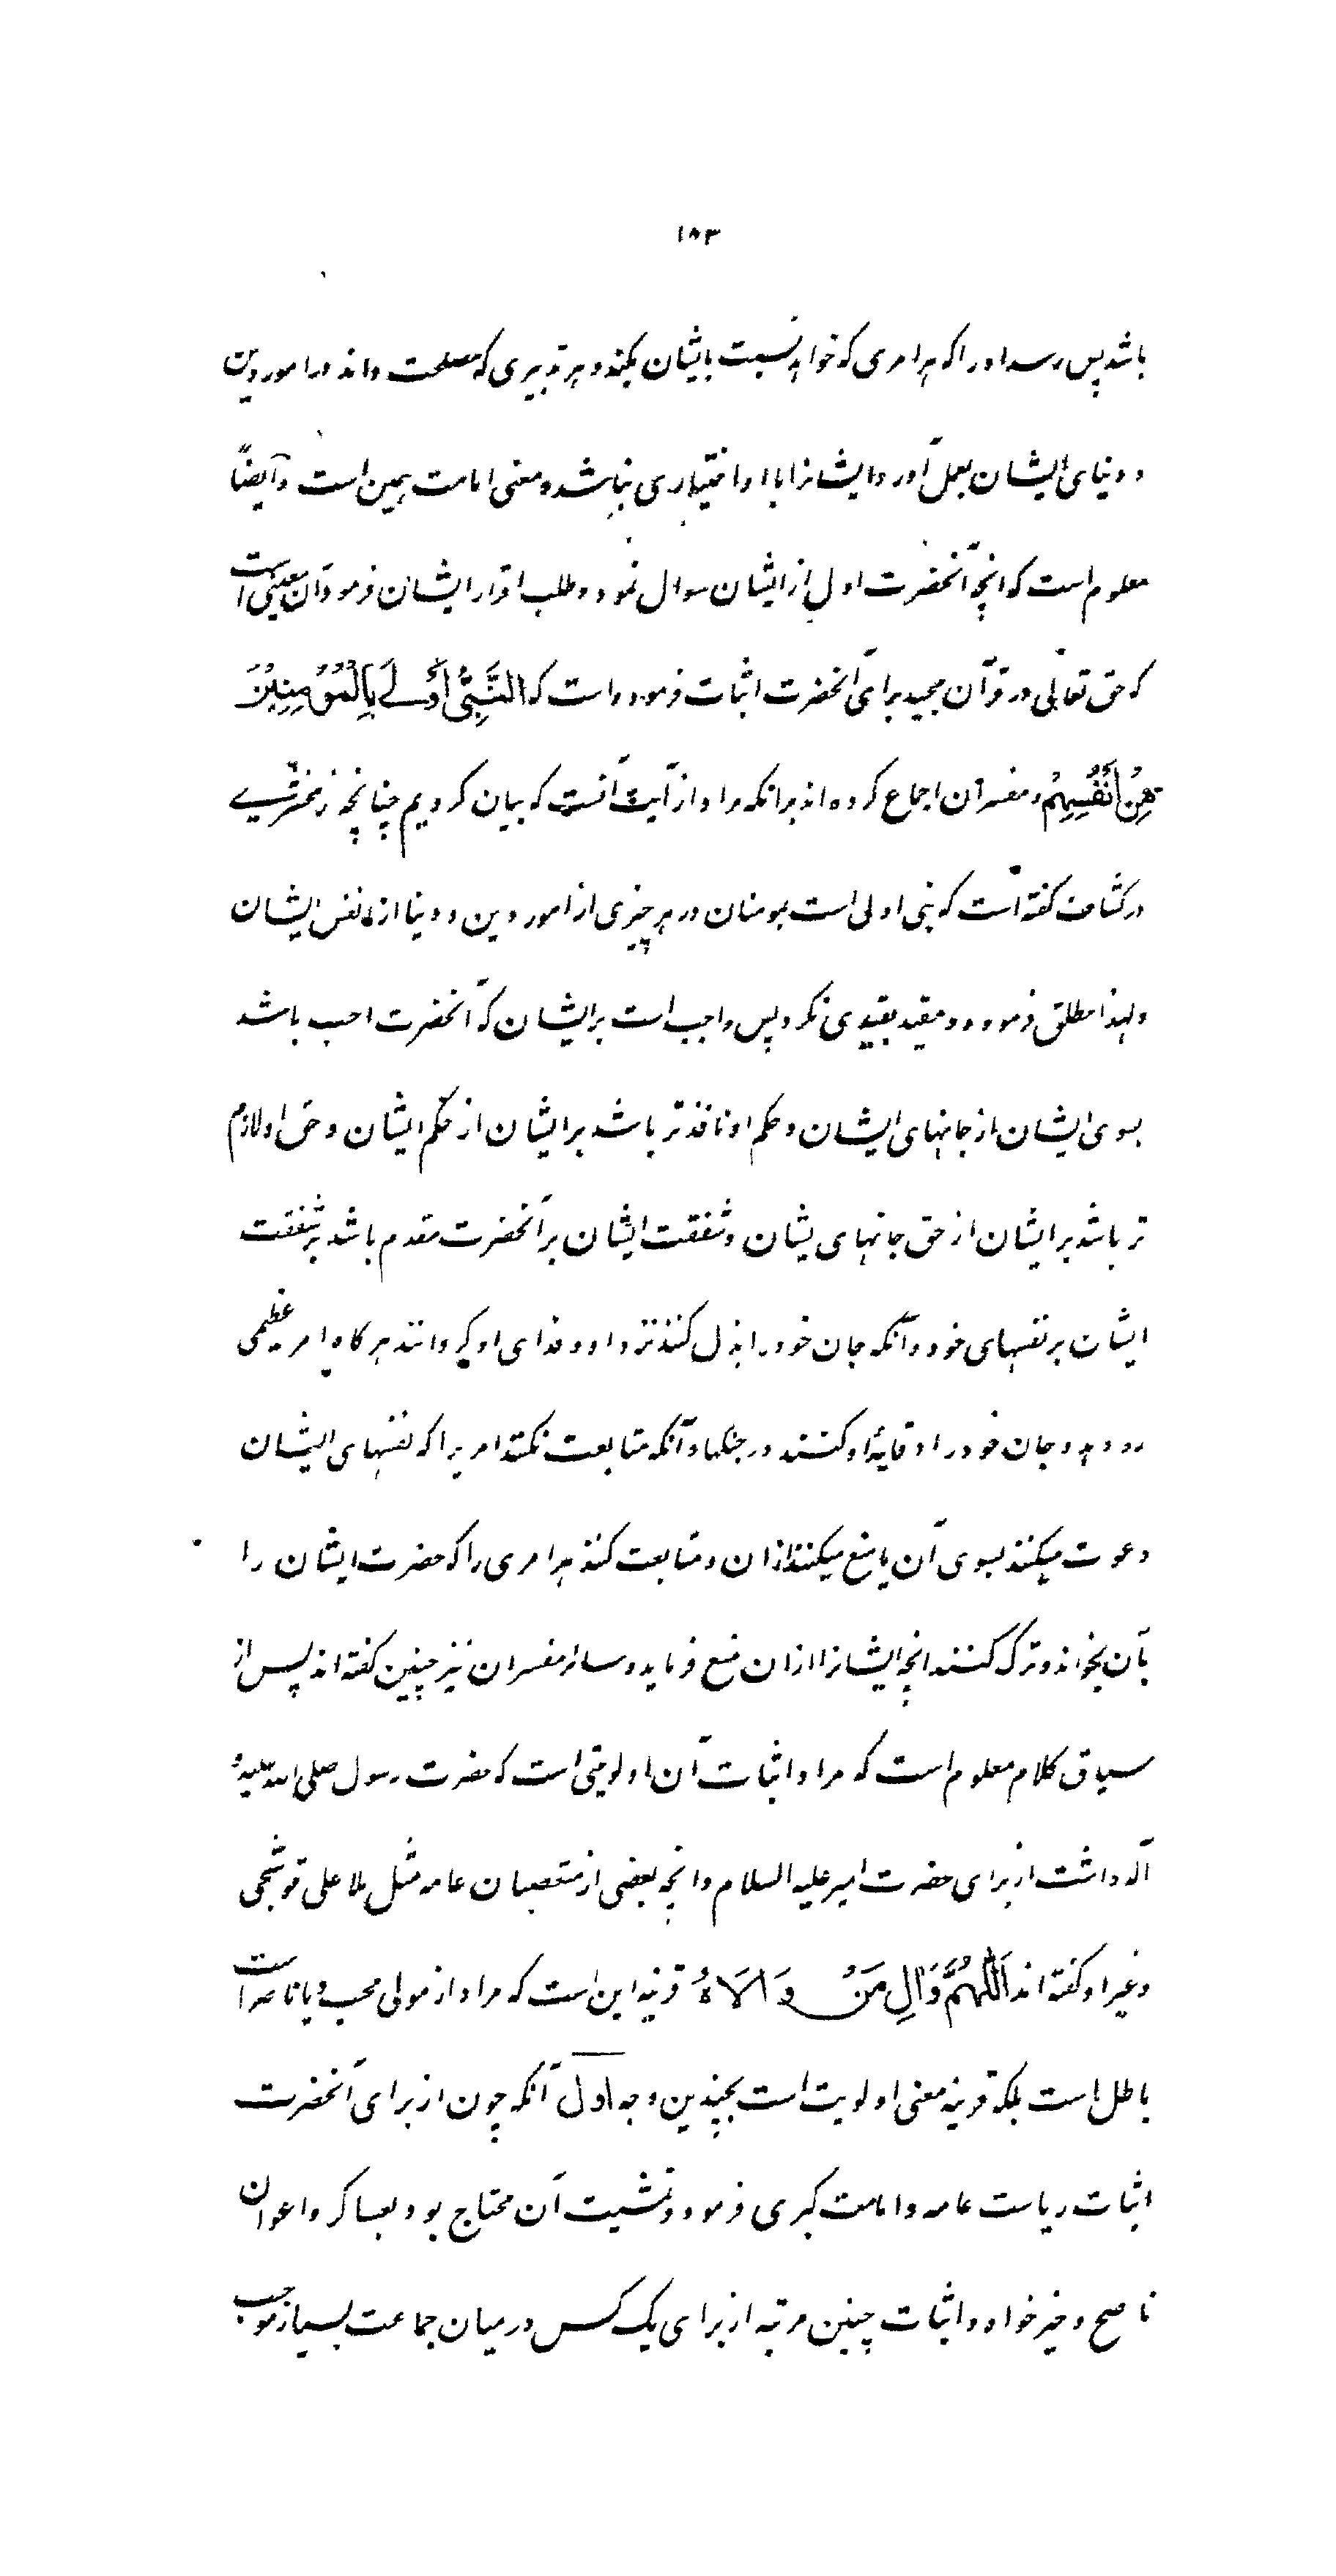 ۱۸۳
باشد پس رسد او را که هر امری که خواهد نسبت بایشان بکند و هر تدبیری که مصلحت داند در امور دین
و دنیای ایشان بعمل آورد و ایشانرا با او اختیاری نباشد و معنی امامت همین است و ایضاً
معلوم است که انچه آنحضرت اول از ایشان سوال نمود و طلب اقرار ایشان فرمود آن معنیی است
که حق تعالی در قرآن مجید برای آنحضرت اثبات فرموده است که النَّبِیُّ أَوْلَے بِالْمُؤْمِنِیْنَ
مِنْ أَنْفُسِهِمْ و مفسران اجماع کرده اند برانکه مراد از آیت آنست که بیان کردیم چنانچه زمخشرے
در کشاف گفته است که نبی اولی است بمومنان در هر چیزی از امور دین و دنیا از نفس ایشان
و لهذا مطلق فرموده و مقید بقیدی نکرد پس واجب است بر ایشان که آنحضرت احب باشد
بسوی ایشان از جانهای ایشان و حکم او نافذ تر باشد بر ایشان از حکم ایشان و حق او لازم
تر باشد بر ایشان از حق جانهای یشان و شفقت ایشان بر آنحضرت مقدم باشد بر شفقت
ایشان بر نفسهای خود و آنکه جان خود را بذل کنند نزد او و فدای او گردانند هر گاه امر عظیمی
رو دهد و جان خود را وقایۀ او کنند در جنگها و آنکه متابعت نکنند امریرا که نفسهای ایشان
دعوت میکنند بسوی آن یا منع میکنند ازان و متابعت کنند هر امری را که حضرت ایشان را
بآن بخواند و ترک کنند انچه ایشانرا ازان منع فرماید و سائر مفسران نیز چنین گفته اند پس از
سیاق کلام معلوم است که مراد اثبات آن اولویتی است که حضرت رسول صلی الله علیه و
آله داشت از برای حضرت امیر علیه السلام و انچه بعضی از متعصبان عامه مثل ملا علی قوشجی
و غیر او گفته اند اَللّٰهُمَّ وَالِ مَنْ وَالَاهُ قرینه این است که مراد از مولی محب و یا ناصر است
باطل است بلکه قرینه معنی اولویت است بچندین وجه اول آنکه چون از برای آنحضرت
اثبات ریاست عامه و امامت کبری فرمود و تمشیت آن محتاج بود بعساکر و اعوان
ناصح و خیر خواه و اثبات چنین مرتبه از برای یک کس در میان جماعت بسیار موجب